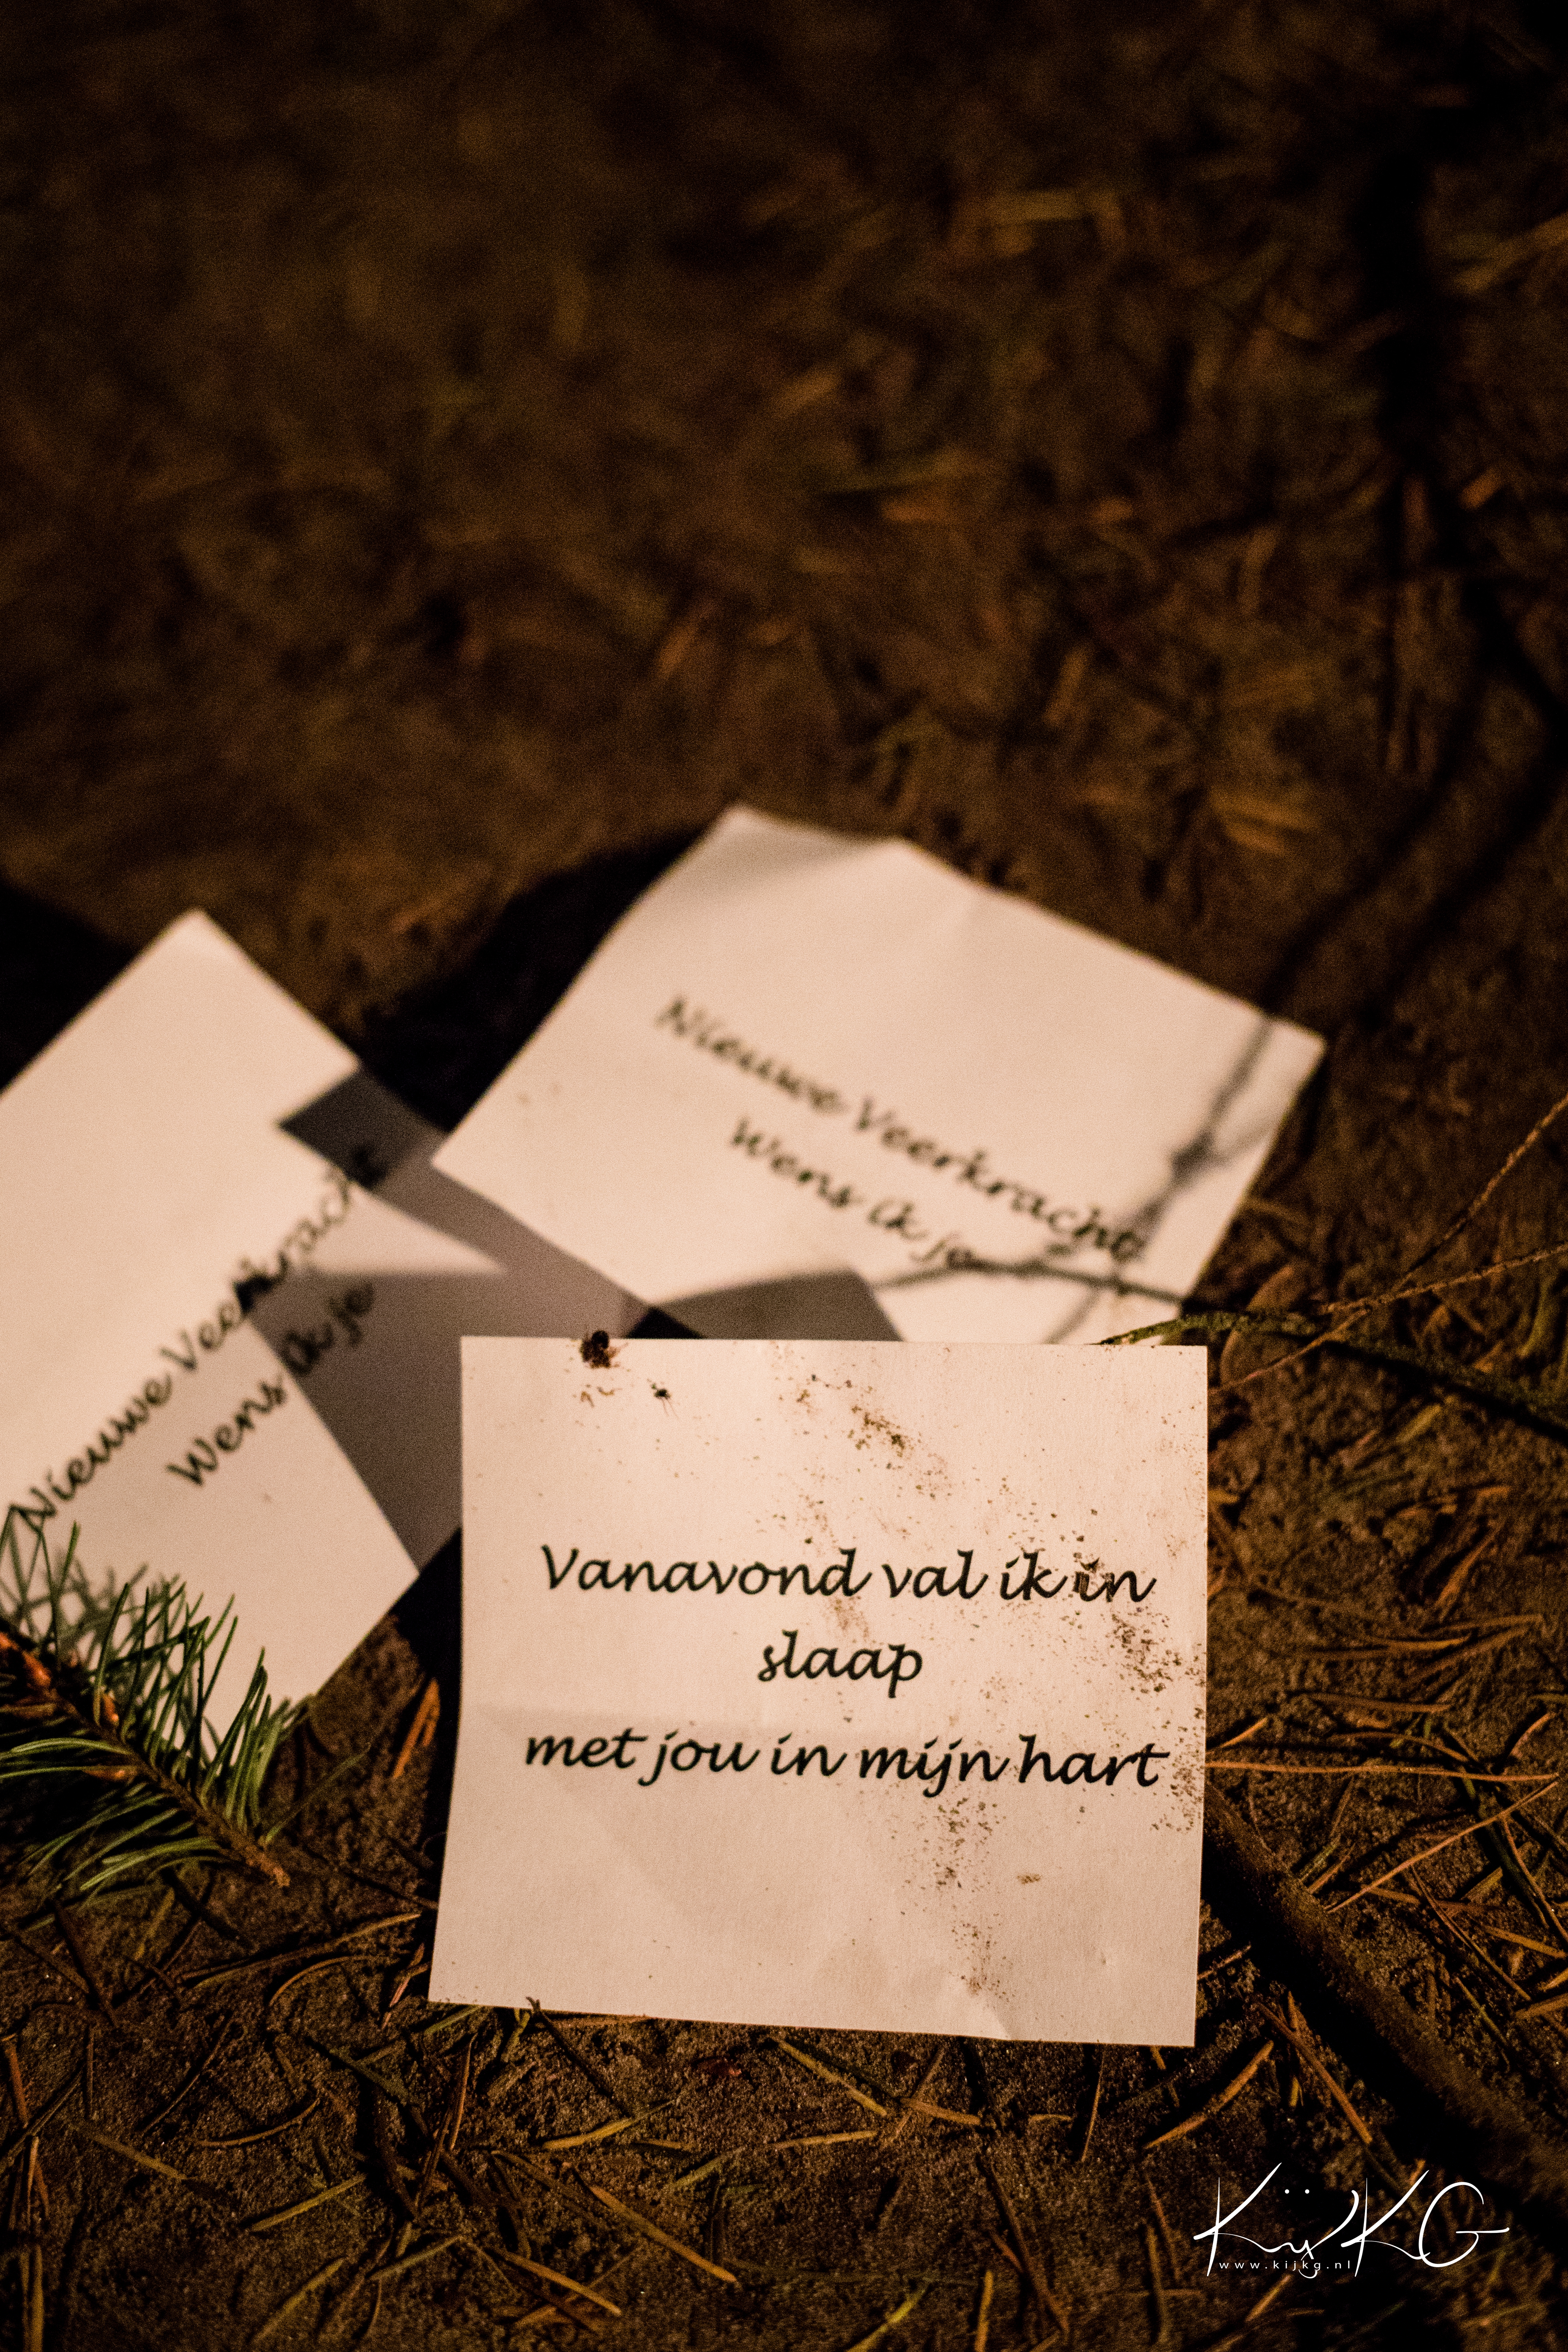 Nieuwe Veerkracht
Wens ik je
Nieuwe Veerkracht
Wens ik je
Vanavond val ik in
slaap
met jou in mijn hart
KijKG
www.kijkg.nl